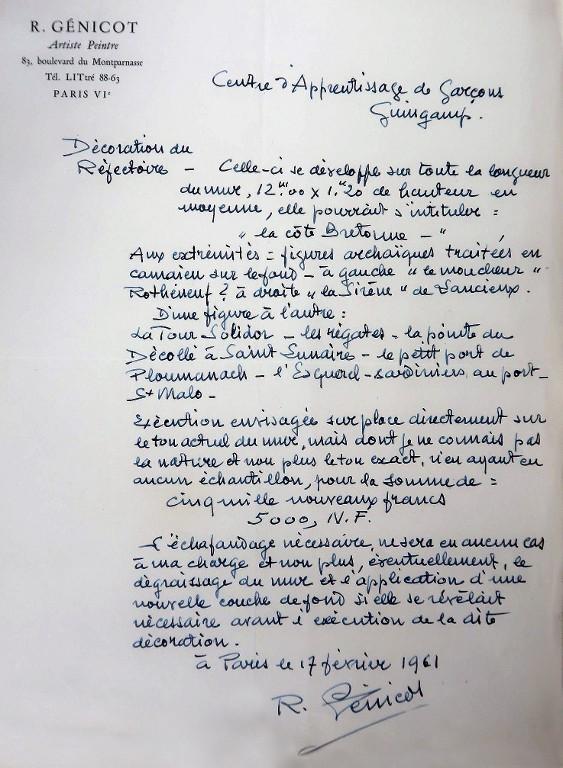 R. GÉNICOT
Artiste Peintre
83, boulevard du Montparnasse
Tél. LITtré 88-63
PARIS VIe
Centre d'Apprentissage de Garçons
Guingamp.
Décoration du
Réfectoire – Celle-ci se développe sur toute la longueur
du mur, 12m00 x 1.m20 de hauteur en
moyenne, elle pourrait s'intituler =
" la côte Bretonne – "
Aux extrémités = figures archaïques traitées en
camaieu sur le fond – à gauche " le moucheur "
Rothéneuf ? à droite " la Sirène " de Lancieux.
D'une figure à l'autre :
La Tour Solidor – les régates – la pointe du
Décollé à Saint Lunaire – le petit port de
Ploumanach – l'Esquerd – sardiniers au port –
St Malo –
Exécution envisagée sur place directement sur
le ton actuel du mur, mais dont je ne connais pas
la nature et non plus le ton exact, n'en ayant eu
aucun échantillon, pour la somme de =
cinq mille nouveaux francs
5000, N.F.
L'échafaudage nécessaire, ne sera en aucun cas
à ma charge et non plus, éventuellement, le
dégraissage du mur et l'application d'une
nouvelle couche de fond si elle se révélait
nécessaire avant l'exécution de la dite
décoration.
à Paris le 17 février 1961
R. Génicot